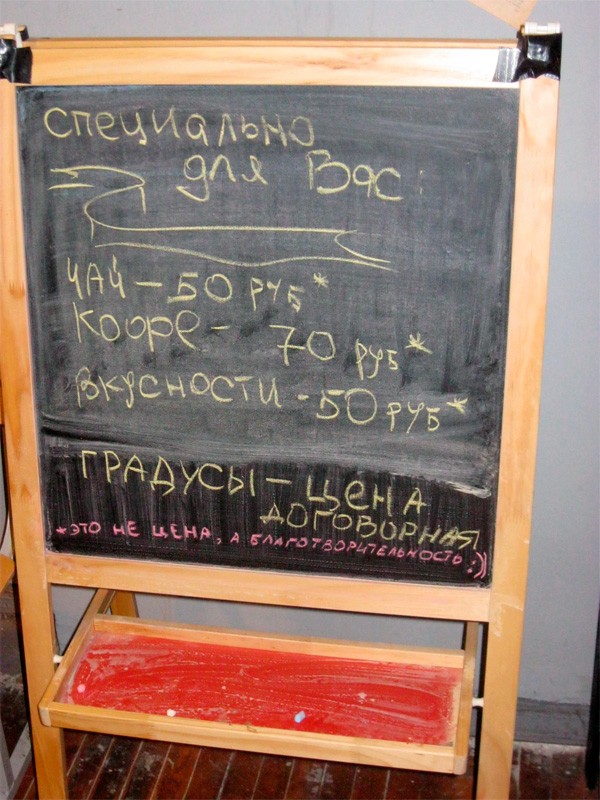 специально
для Вас:
ЧАЙ – 50 руб*
Кофе - 70 руб*
ВКУСНОСТИ - 50 руб*
ГРАДУСЫ – ЦЕНА
ДОГОВОРНАЯ
*ЭТО НЕ ЦЕНА, А БЛАГОТВОРИТЕЛЬНОСТЬ:))